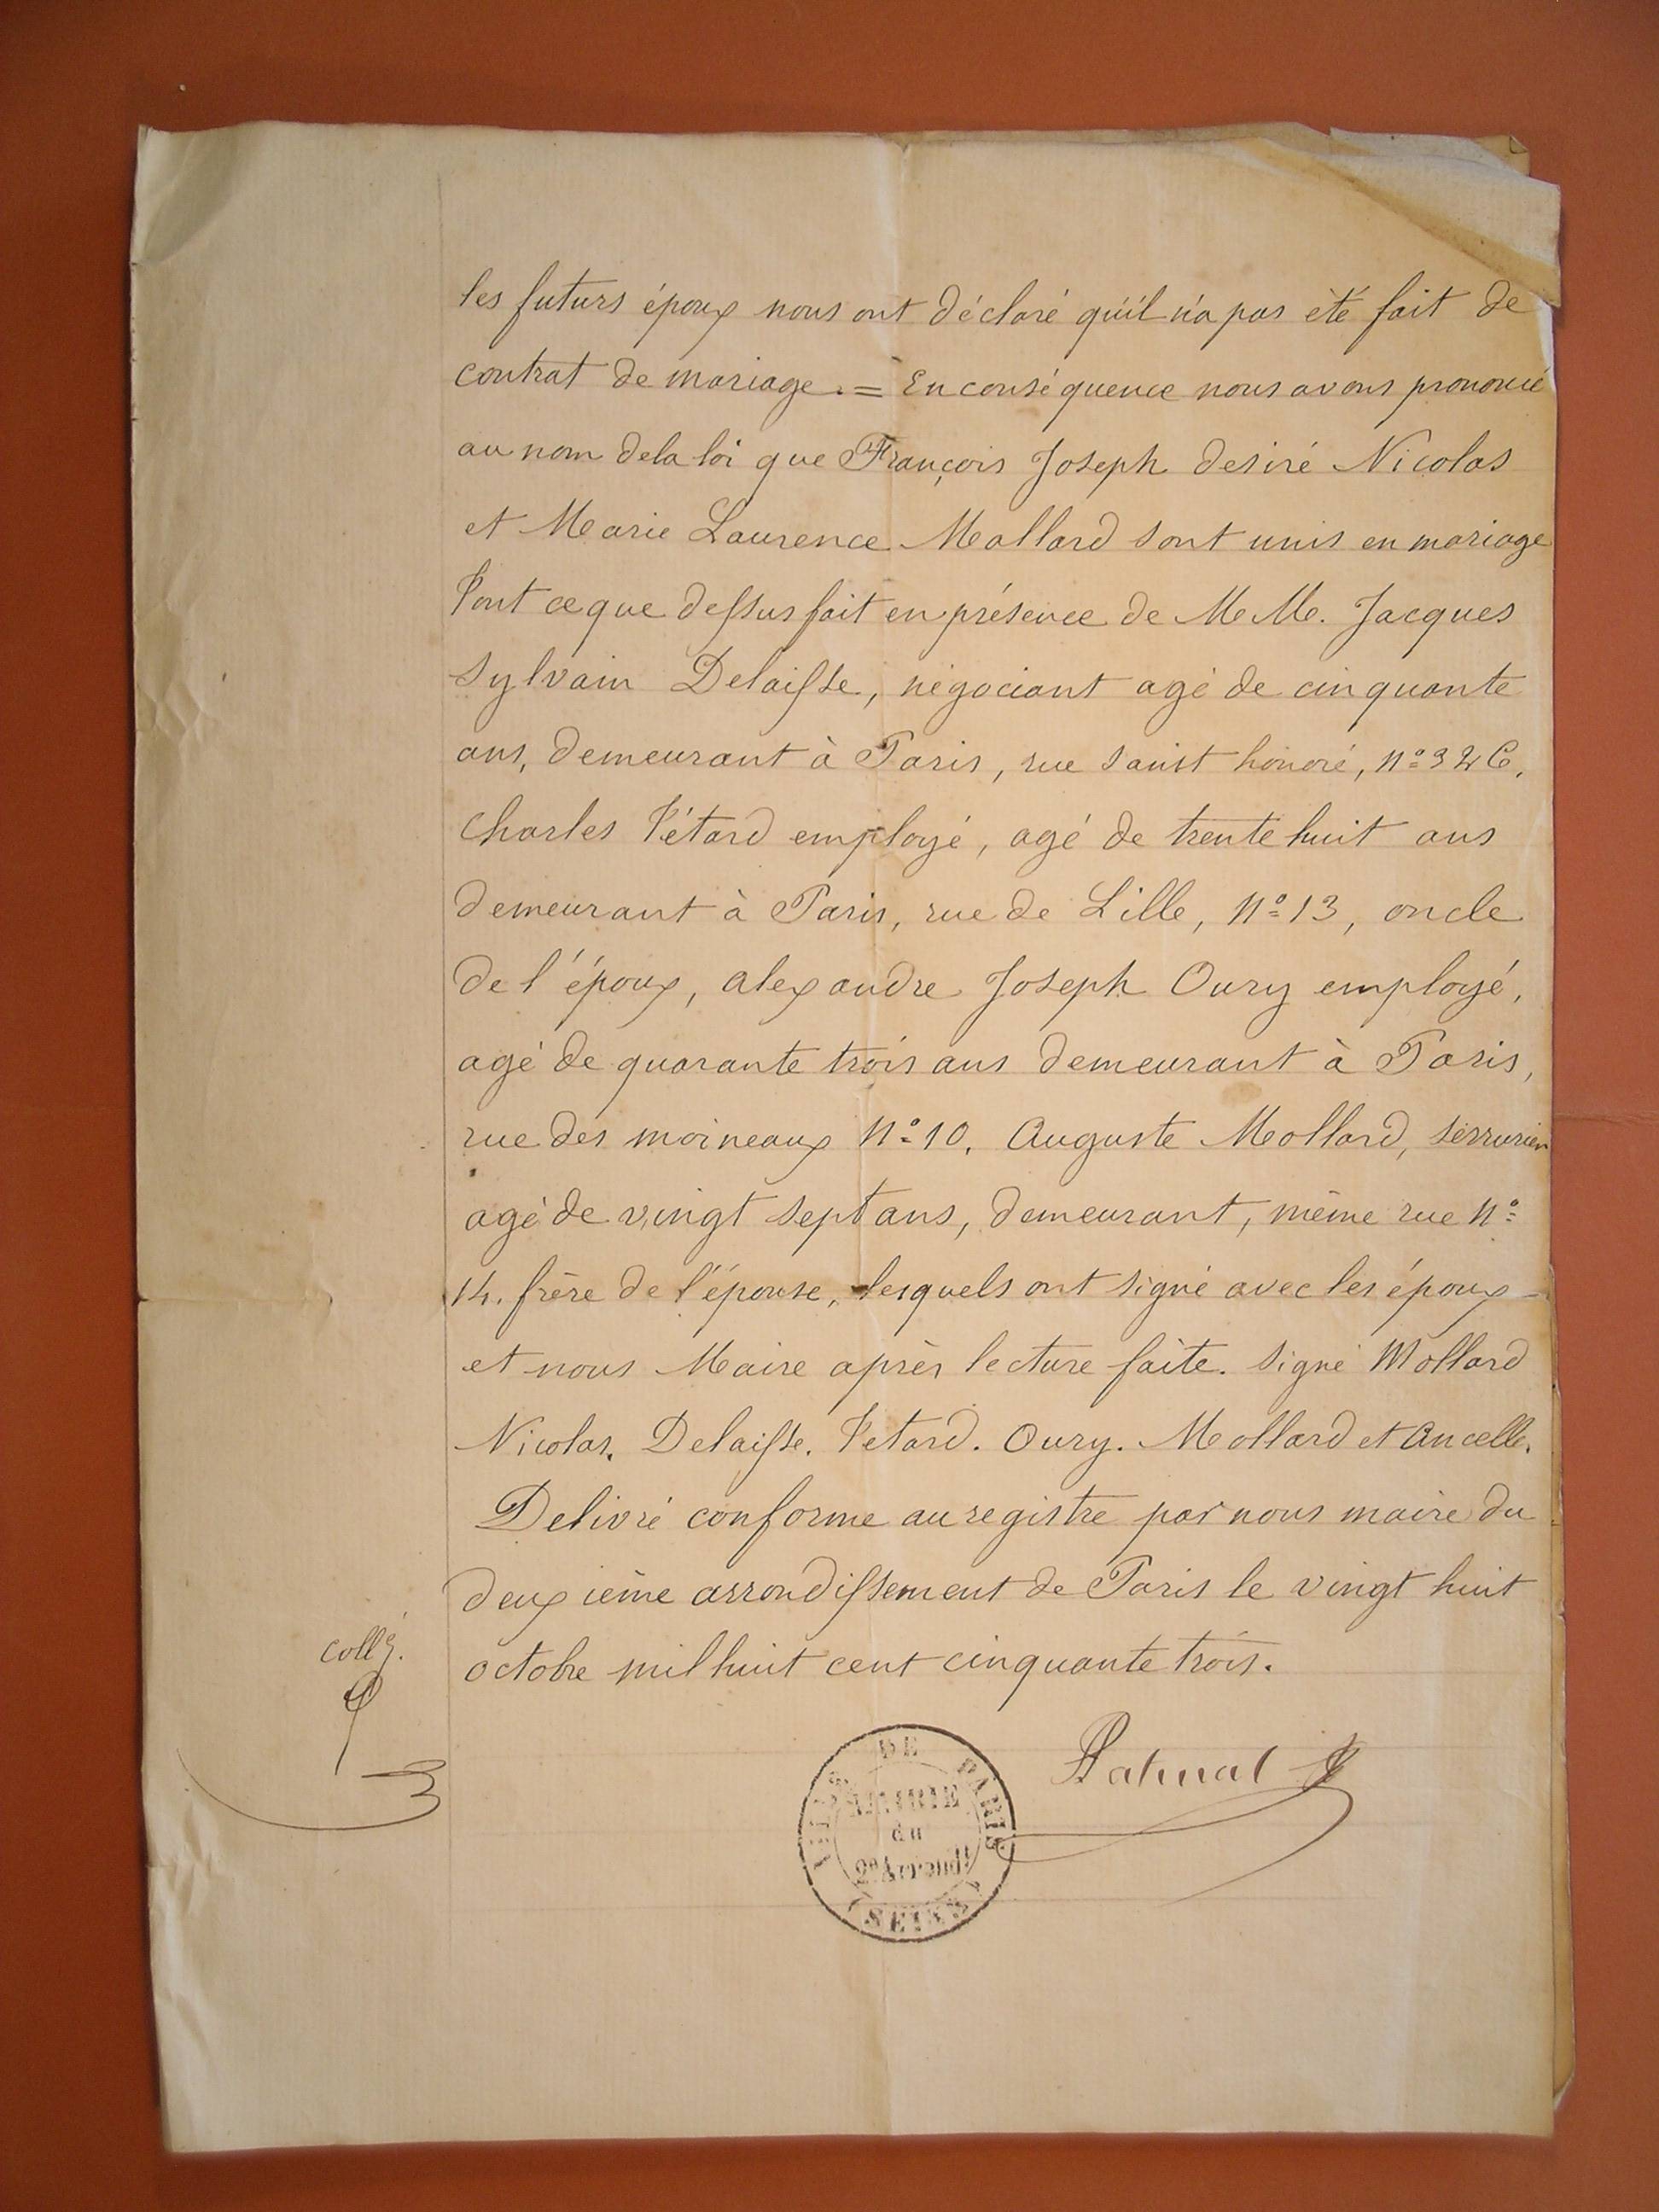 les futurs époux nous ont déclaré qu'il n'a pas été fait de
contrat de mariage. = En conséquence nous avons prononcé
au nom de la loi que François Joseph desiré Nicolas
et Marie Laurence Mollard sont unis en mariage
Tout ce que dessus fait en présence de M.M. Jacques
Sylvain Delaisse, négociant agé de cinquante
ans, demeurant à Paris, rue saint honoré, n° 326,
Charles Pétard employé, agé de trente huit ans
demeurant à Paris, rue de Lille, n° 13, oncle
de l'époux, alexandre Joseph Oury employé,
agé de quarante trois ans demeurant à Paris,
rue des moineaux n° 10, Auguste Mollard, serrurier
agé de vingt sept ans, demeurant, même rue n°
14. frère de l'épouse, lesquels ont signé avec les époux
et nous Maire après lecture faite. Signé Mollard
Nicolas. Delaisse. Pétard. Oury. Mollard et Ancelle.
Delivré conforme au registre par nous maire du
deuxième arrondissement de Paris le vingt huit
octobre mil huit cent cinquante trois.
coll<sup>é</sup>.
VILLE DE PARIS
MAIRIE
du
2e Arrondt
(SEINE)